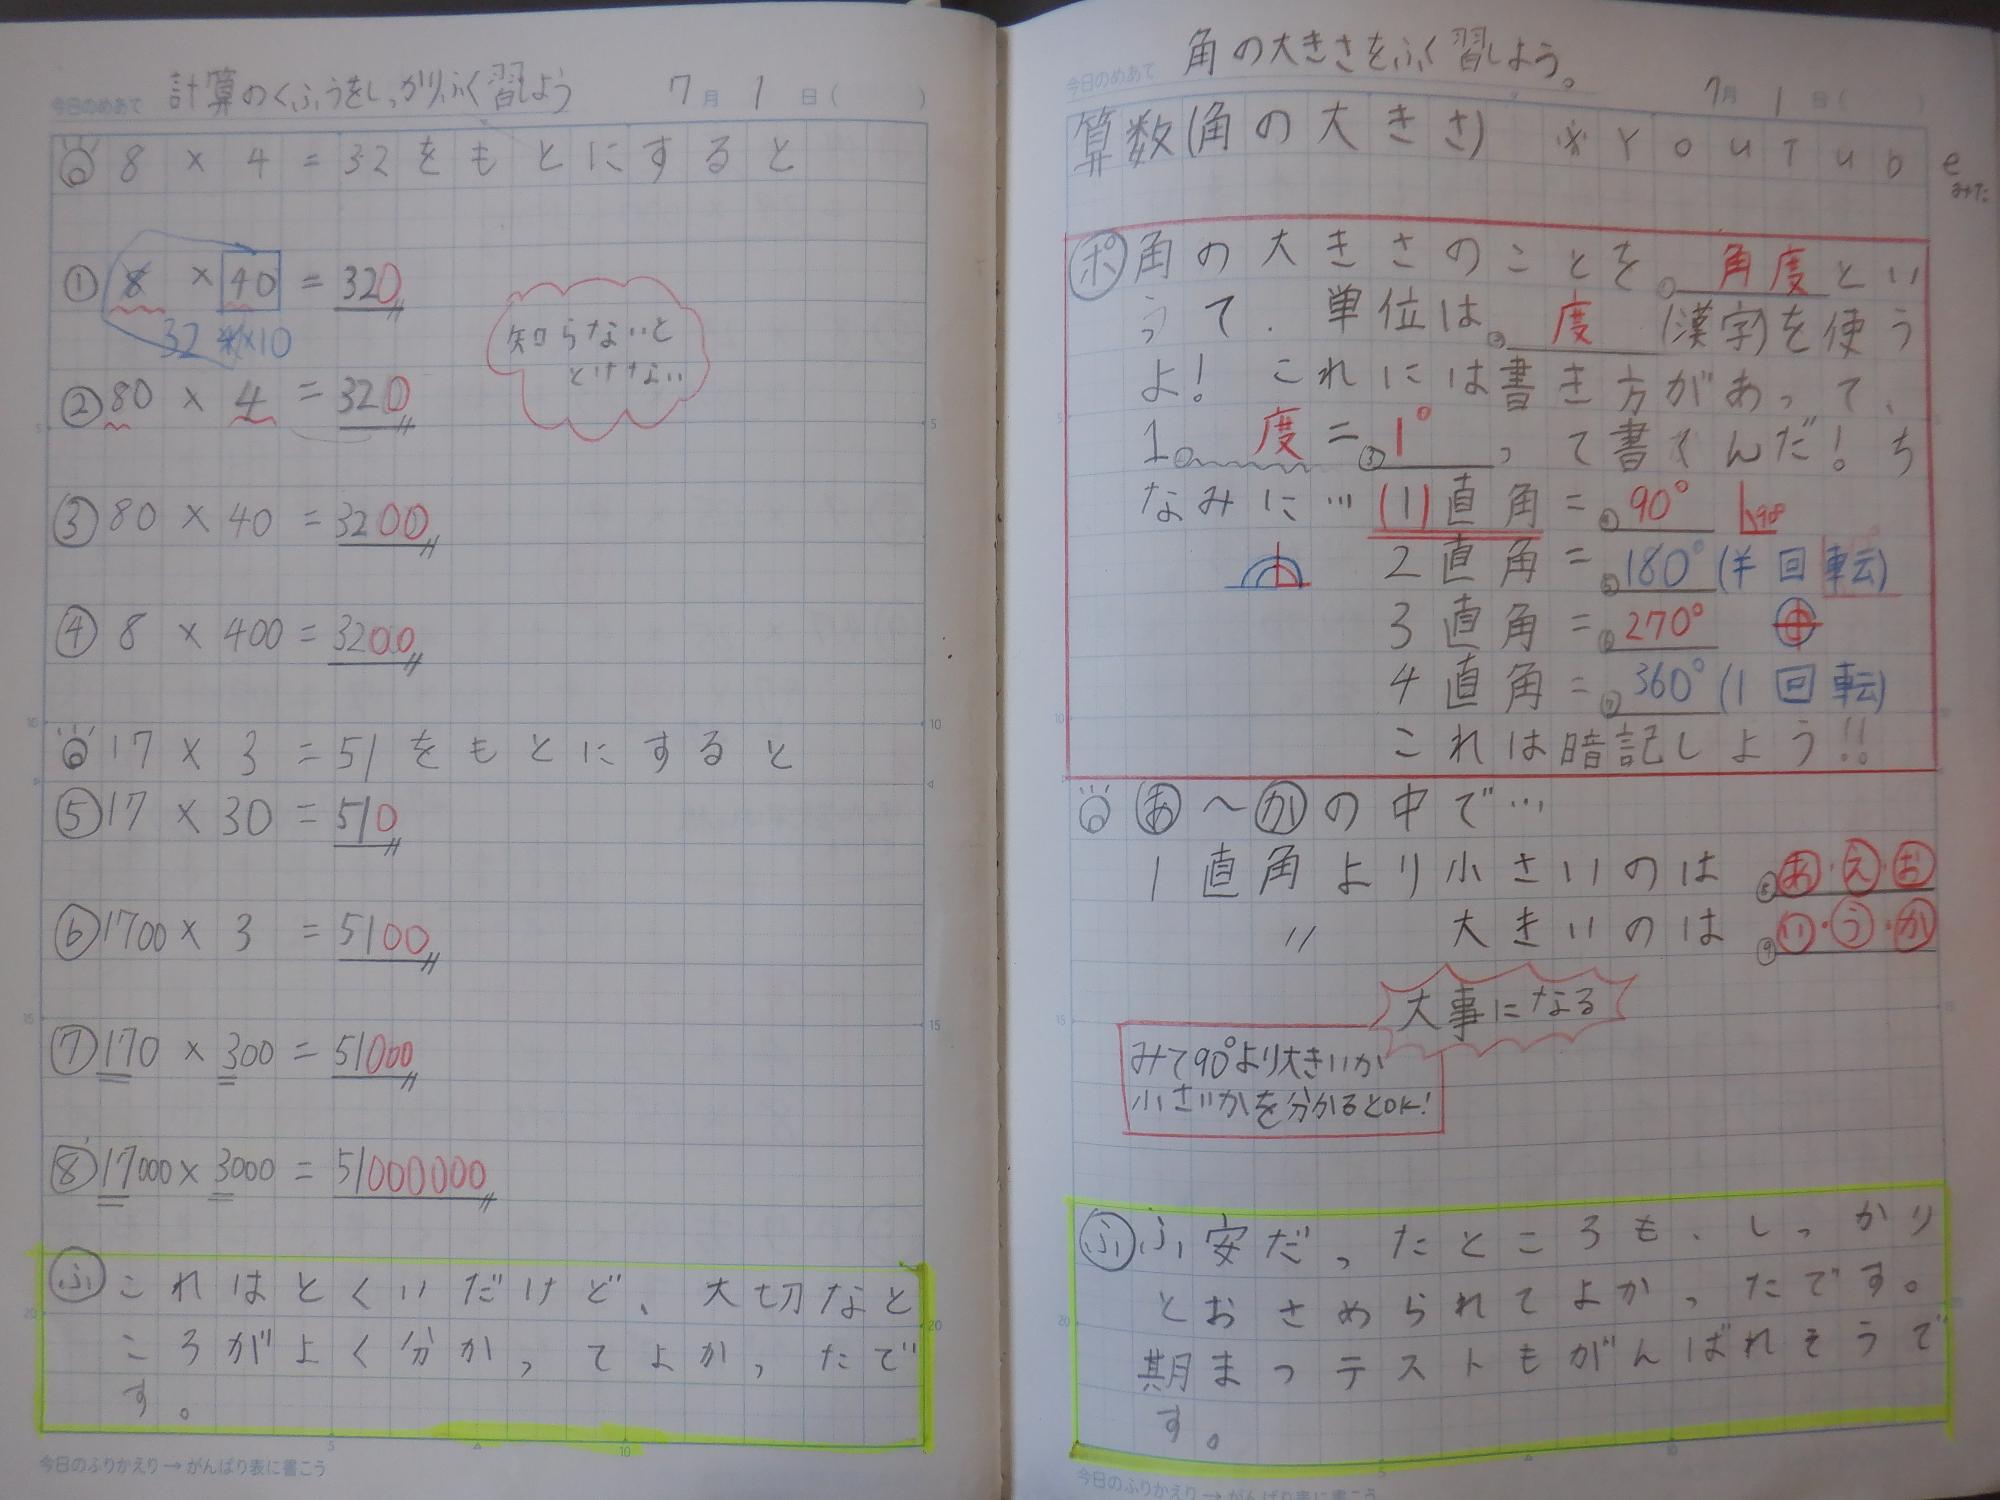 今日のめあて 計算のくふうをしっかりふく習しよう 7月1日( )
8×4=32をもとにすると
① 8×40=320
32×10
知らないと
とけない
② 80×4=320
③ 80×40=3200
④ 8×400=3200
17×3=51をもとにすると
⑤ 17×30=510
⑥ 1700×3=5100
⑦ 170×300=51000
⑧ 17000×3000=51000000
ふ これはとくいだけど、大切なと
ころがよく分かってよかったで
す。
今日のふりかえり→がんばり表に書こう
今日のめあて 角の大きさをふく習しよう。 7月1日( )
算数(角の大きさ) ※YouTube みた
ポ 角の大きさのことを①角度とい
うて、単位は②度(漢字)を使う
よ! これには書き方があって、
1②度=③1°って書くんだ!ち
なみに…(1)直角=④90° 90°
2直角=⑤180°(半回転)
3直角=⑥270°
4直角=⑦360°(1回転)
これは暗記しよう!!
あ〜かの中で…
1直角より小さいのは ⑧あ・え・お
〃 大きいのは ⑨い・う・か
大事になる
みて90°より大きいか
小さいかを分かるとOK!
ふ ふ安だったところも、しっかり
とおさめられてよかったです。
期まつテストもがんばれそうで
す。
今日のふりかえり→がんばり表に書こう